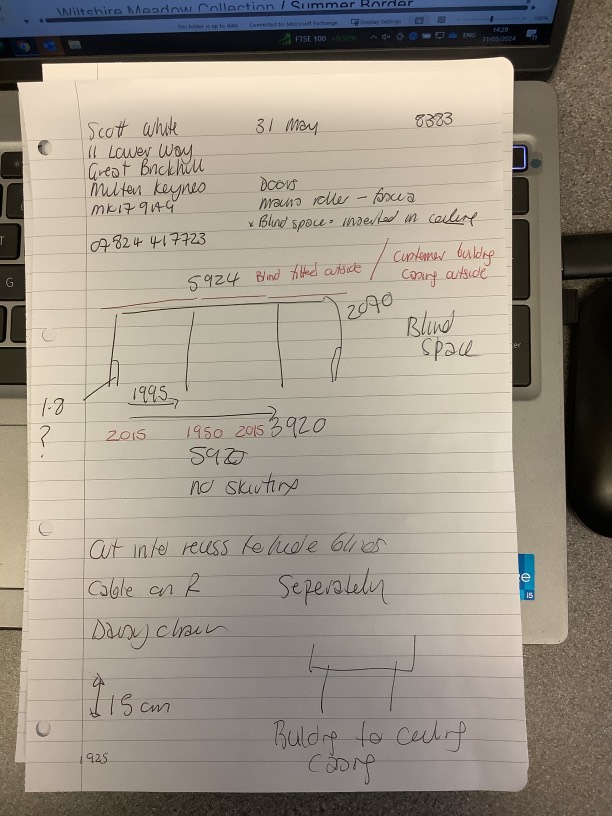 Wiltshire Meadow Collection / Summer Border
This folder is up to date. Connected to: Microsoft Exchange Display Settings
FTSE 100 +0.60% ENG 14:29
31/05/2024
Scott White 31 May 8383
11 Lower Way
Great Brickhill
Milten Keynes Doors
MK17 9AG mains roller - fascia
* Blind space - inserted in ceiling
07824 417723
5924 Blind fitted outside / Customer building
casing outside
2090
Blind
space
1995
1.8
?
3920
2015 1950 2015
5920
no skirting
Cut into recess to hide blinds
Cable on R Seperately
Daisy chain
15cm
Building to ceiling
casing
1925
e
i5
G
T